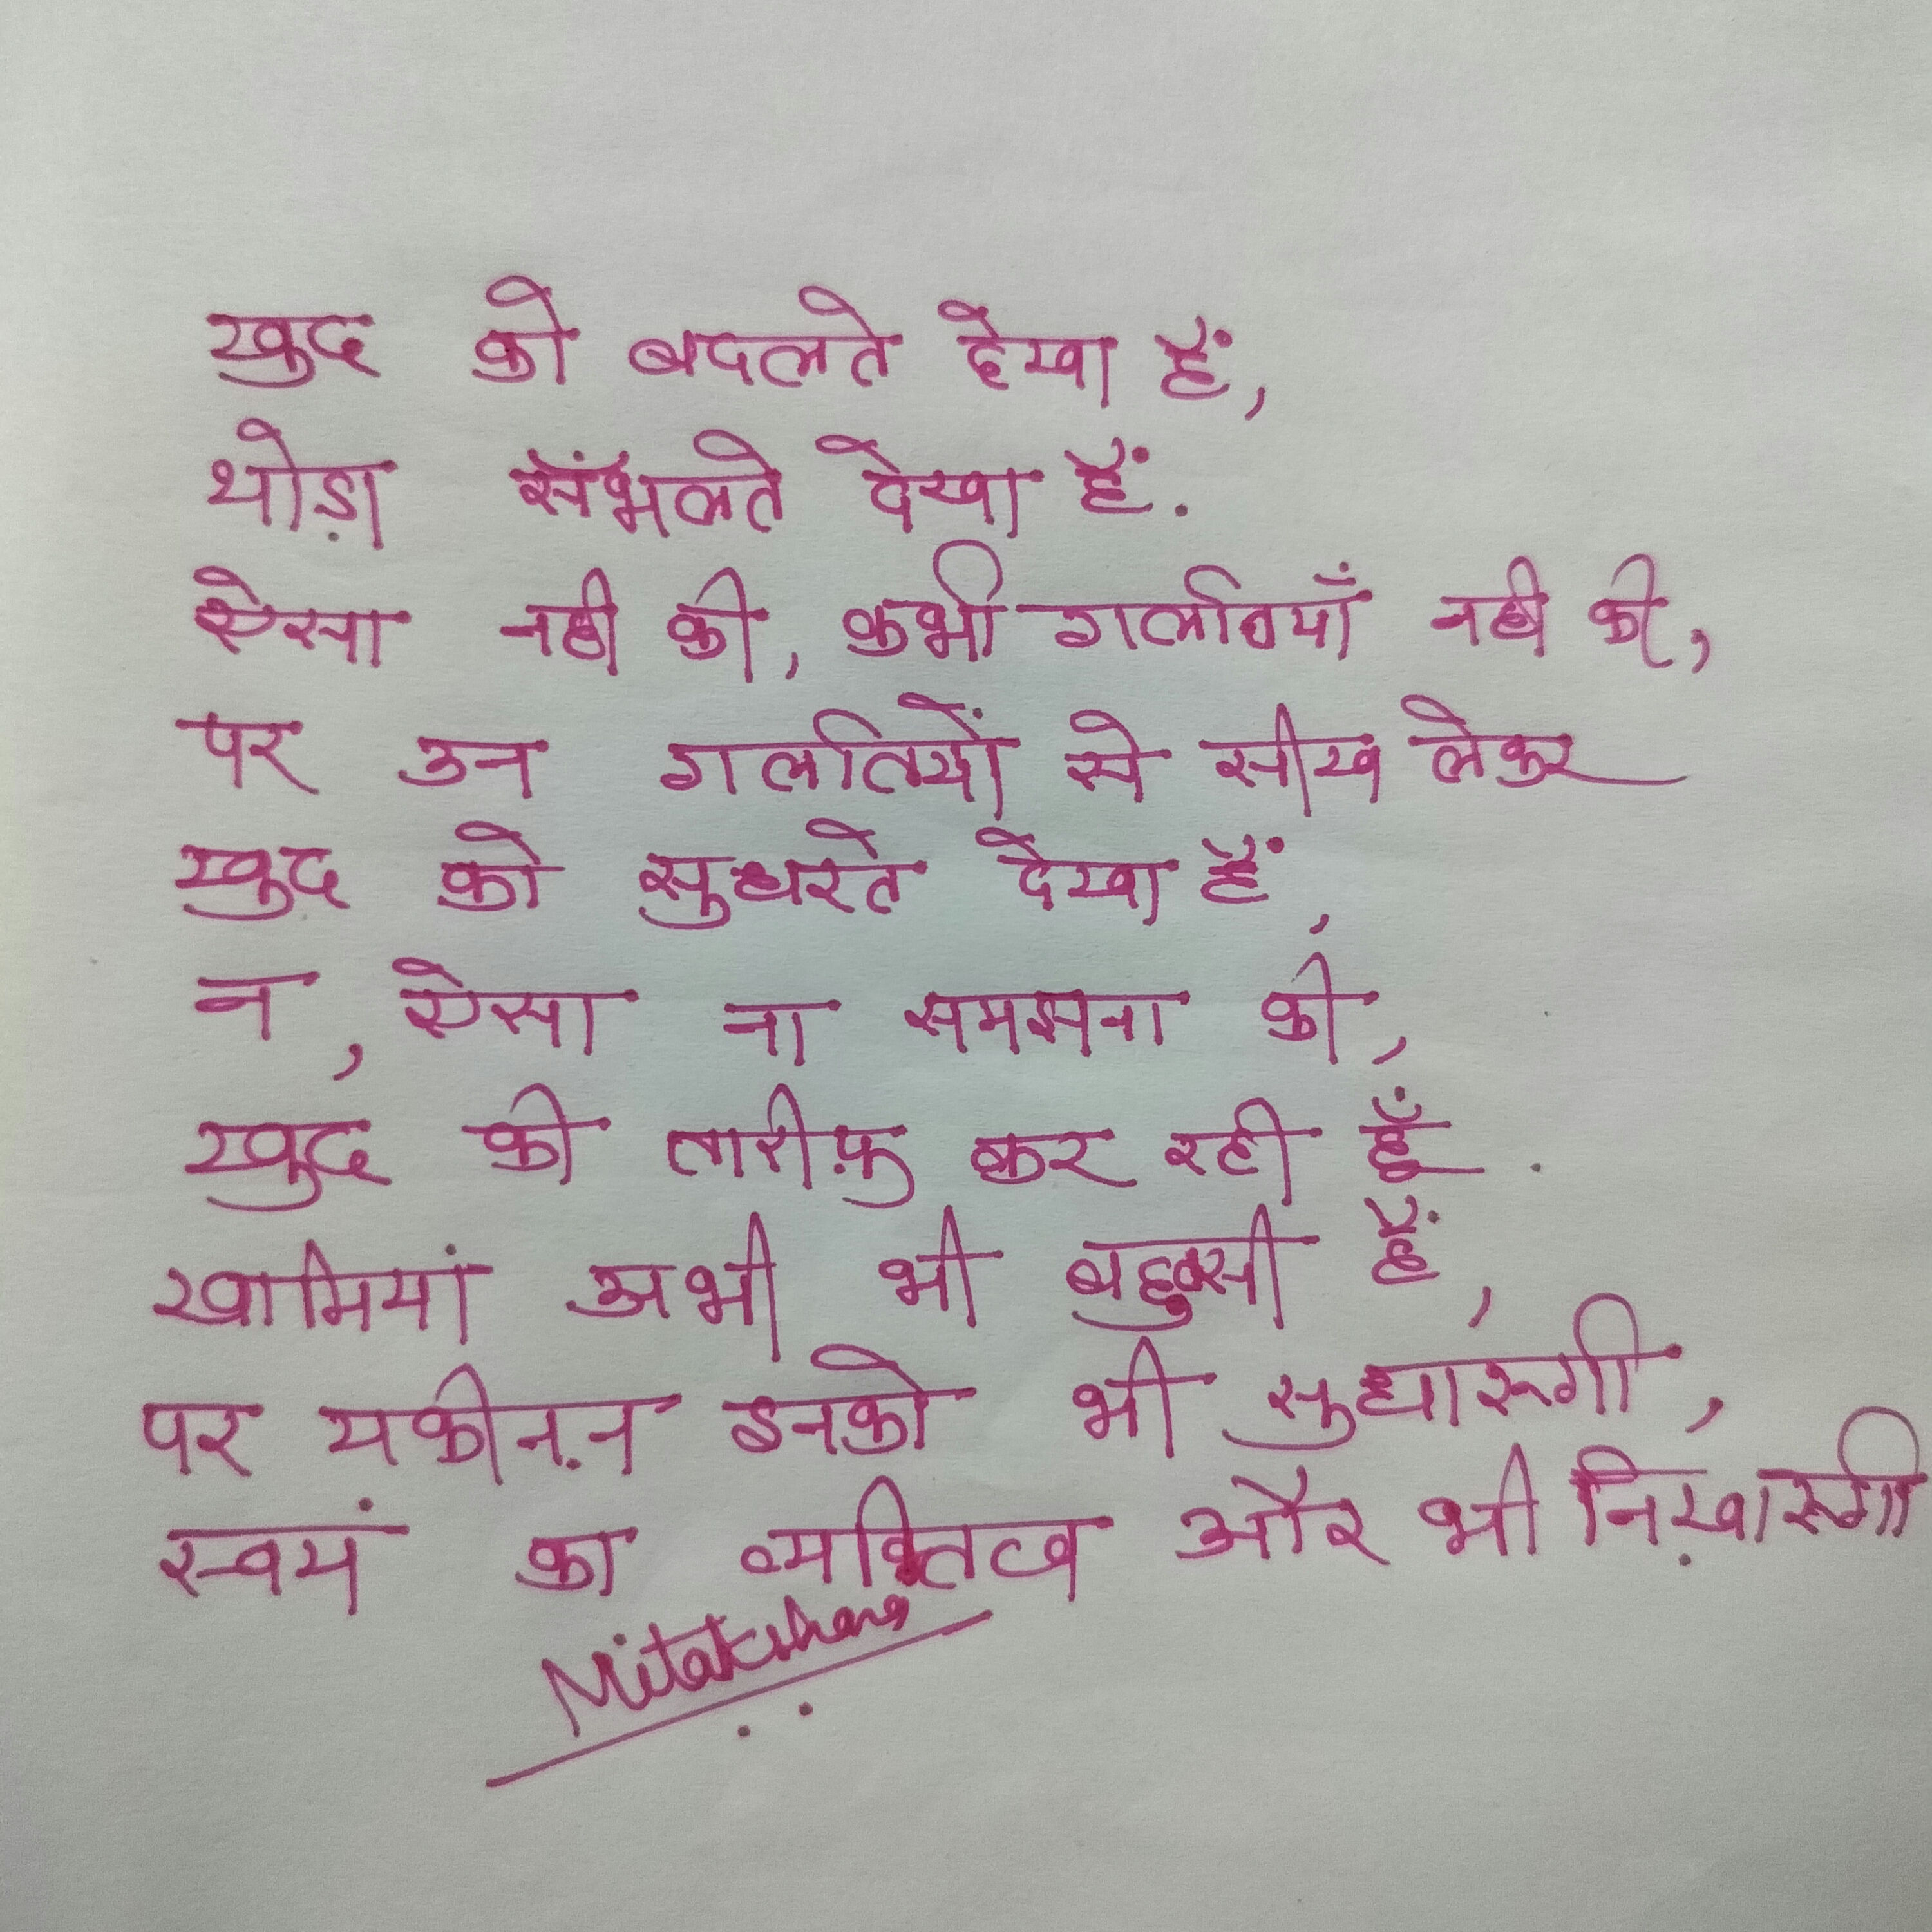 खुद को बदलते देखा हैं,
थोड़ा संभलते देखा हैं.
ऐसा नही की, कभी गलतियाँ नही की,
पर उन गलतियों से सीख लेकर
खुद को सुधरते देखा हैं,
न, ऐसा ना समझना की,
खुद की तारीफ़ कर रही हूँ.
खामियां अभी भी बहुत सी हैं,
पर यकीनन इनको भी सुधारूंगी,
स्वयं का व्यक्तित्व और भी निखारूंगी
Mitakshara